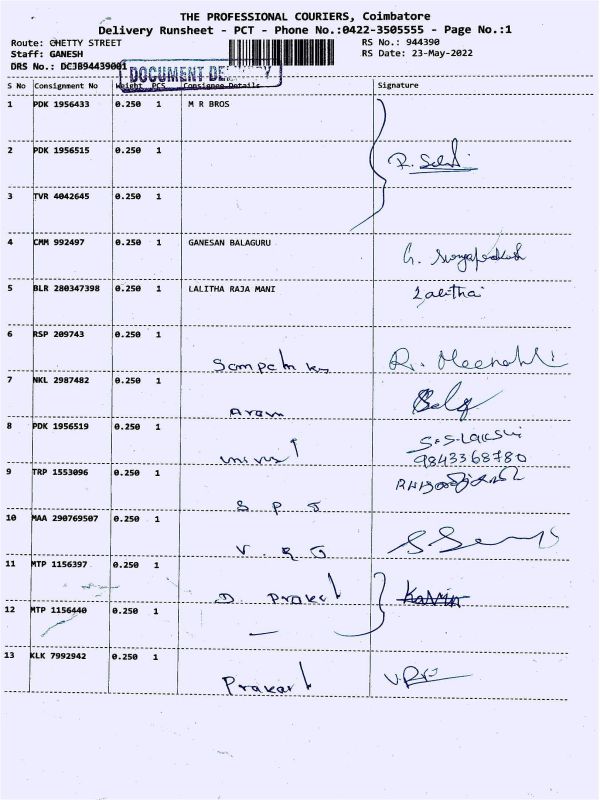 THE PROFESSIONAL COURIERS, Coimbatore
Delivery Runsheet - PCT - Phone No.:0422-3505555 - Page No.:1
Route: CHETTY STREET RS No.: 944390
Staff: GANESH RS Date: 23-May-2022
DRS No.: DCJB94439001 DOCUMENT DELIVERY
S No Consignment No Weight PCS Consignee Details Signature
1 PDK 1956433 0.250 1 M R BROS
2 PDK 1956515 0.250 1
3 TVR 4042645 0.250 1
4 CMM 992497 0.250 1 GANESAN BALAGURU
5 BLR 280347398 0.250 1 LALITHA RAJA MANI Lalitha
6 RSP 209743 0.250 1
7 NKL 2987482 0.250 1
8 PDK 1956519 0.250 1
9843368780
9 TRP 1553096 0.250 1
S P J
10 MAA 290769507 0.250 1
V. R J
11 MTP 1156397 0.250 1
12 MTP 1156440 0.250 1
13 KLK 7992942 0.250 1